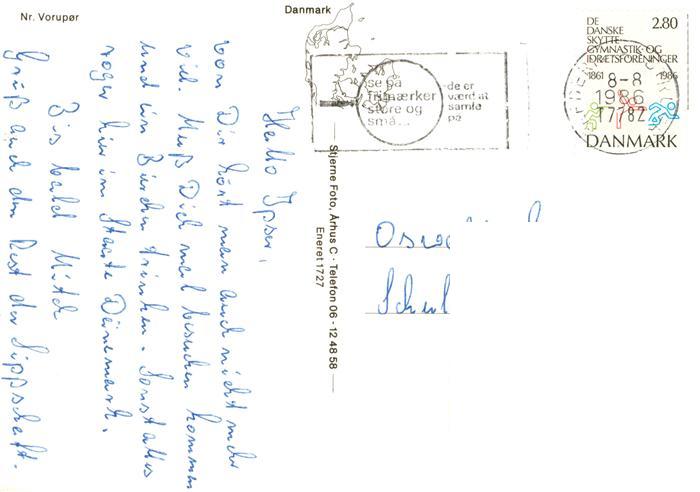 Nr. Vorupør
Danmark
Hallo Ipser,
von Dir hört man auch nicht mehr
viel. Muß Dich mal besuchen kommen
und ein Bierchen trinken. Sonst alles
roger hier im Staate Dänemark.
Bis bald
Gruß auch den Rest der Sippschaft.
Stjerne Foto, Århus C · Telefon 06 - 12 48 58
Eneret 17/27
se på
frimærker
store og
små...
-de er
værd at
samle
på
DE
DANSKE
SKYTTE
GYMNASTIK-OG
IDRÆTSFORENINGER
2.80
1861 1986
8-8
1986
17782
DANMARK